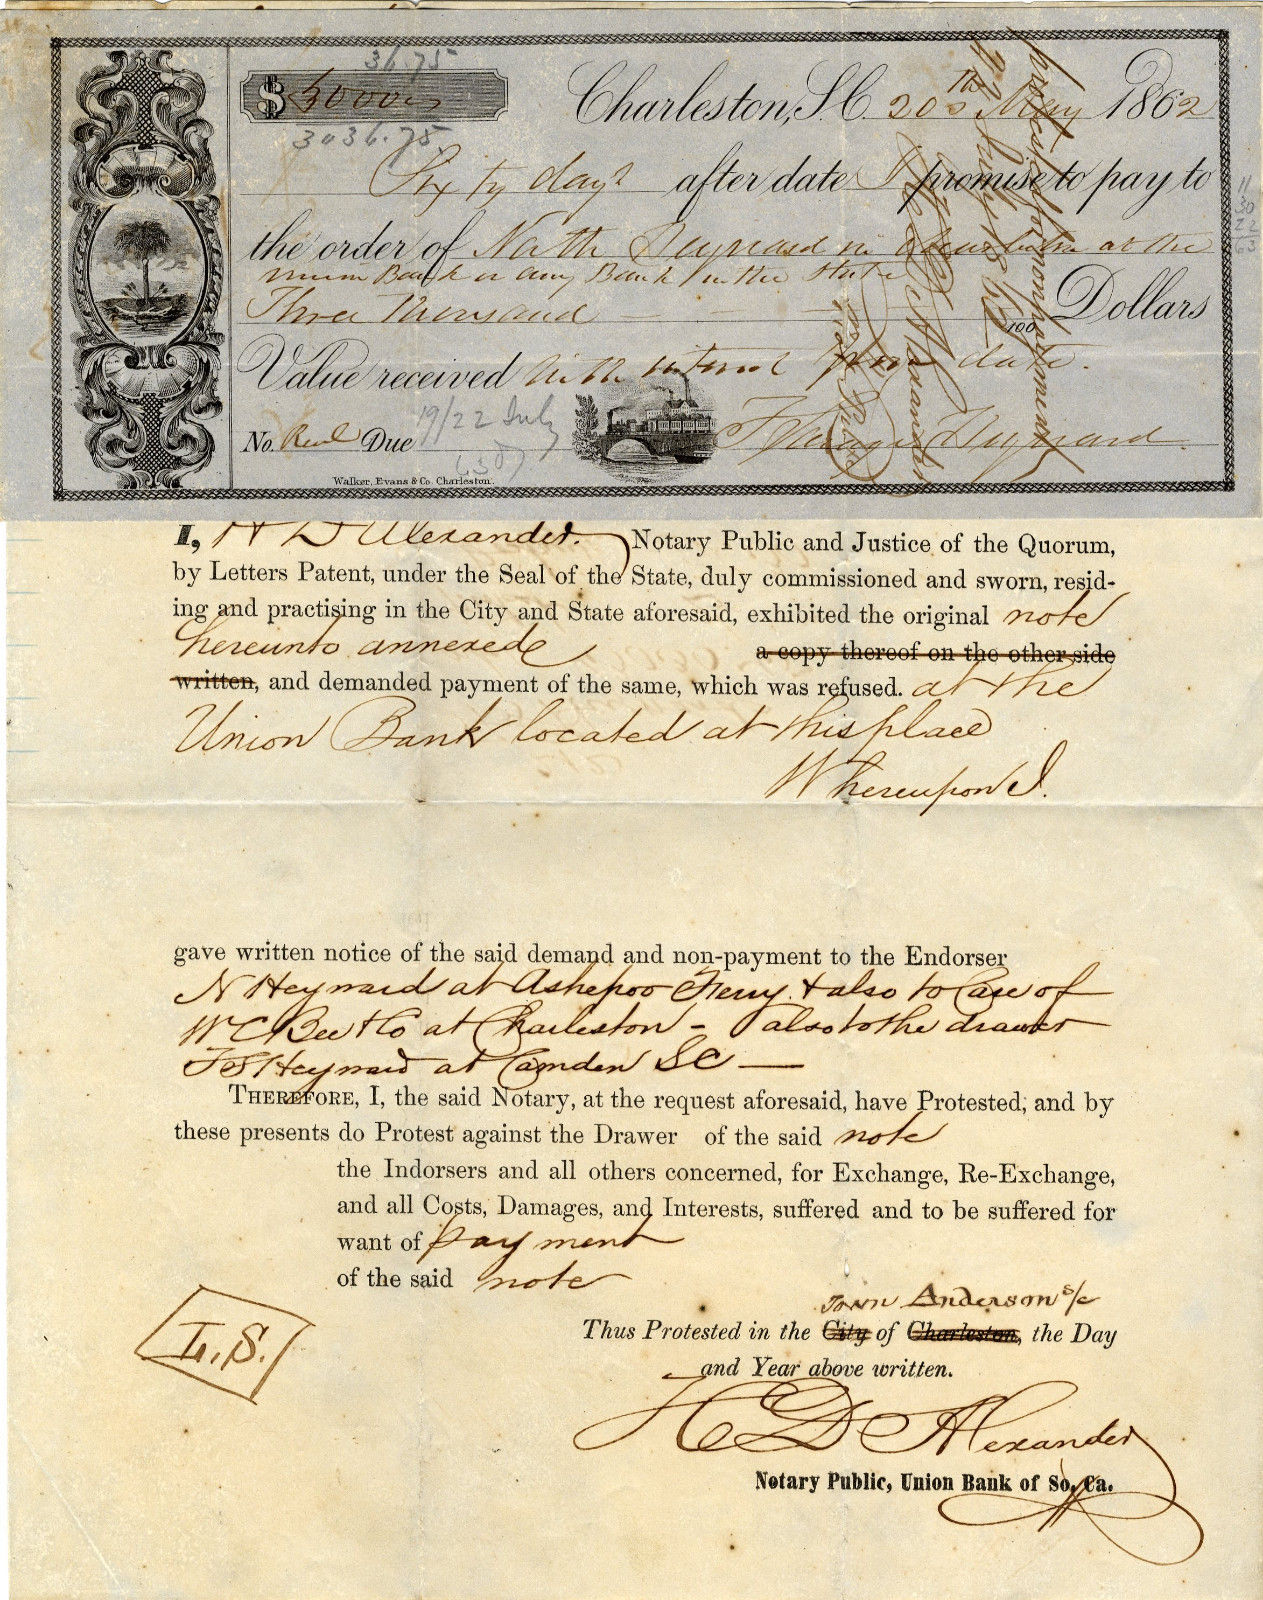 36.75
$ 3000
3036.75
Charleston, S.C. 20th May 1862
Sixty days after date I promise to pay to
the order of Nath Heyward in at the
Union Bank or any Bank in the State
Three Thousand /100 Dollars
Value received with interest from date.
No. Due 19/22 July
Walker, Evans & Co. Charleston.
protested for nonpayment
22 July 1862
H D Alexander
Not Pub
11
30
22
63
I, H D Alexander. Notary Public and Justice of the Quorum,
by Letters Patent, under the Seal of the State, duly commissioned and sworn, resid-
ing and practising in the City and State aforesaid, exhibited the original note
hereunto annexed a copy thereof on the other side
written, and demanded payment of the same, which was refused. at the
Union Bank located at this place
Whereupon I.
gave written notice of the said demand and non-payment to the Endorser
N Heyward at Ashepoo Ferry & also to Care of
W C Bee & Co at Charleston - also to the drawer
T S Heyward at Camden SC —
THEREFORE, I, the said Notary, at the request aforesaid, have Protested, and by
these presents do Protest against the Drawer of the said note
the Indorsers and all others concerned, for Exchange, Re-Exchange,
and all Costs, Damages, and Interests, suffered and to be suffered for
want of payment
of the said note
Town Anderson s/c
Thus Protested in the City of Charleston, the Day
and Year above written.
L.S.
H D Alexander
Notary Public, Union Bank of So. Ca.